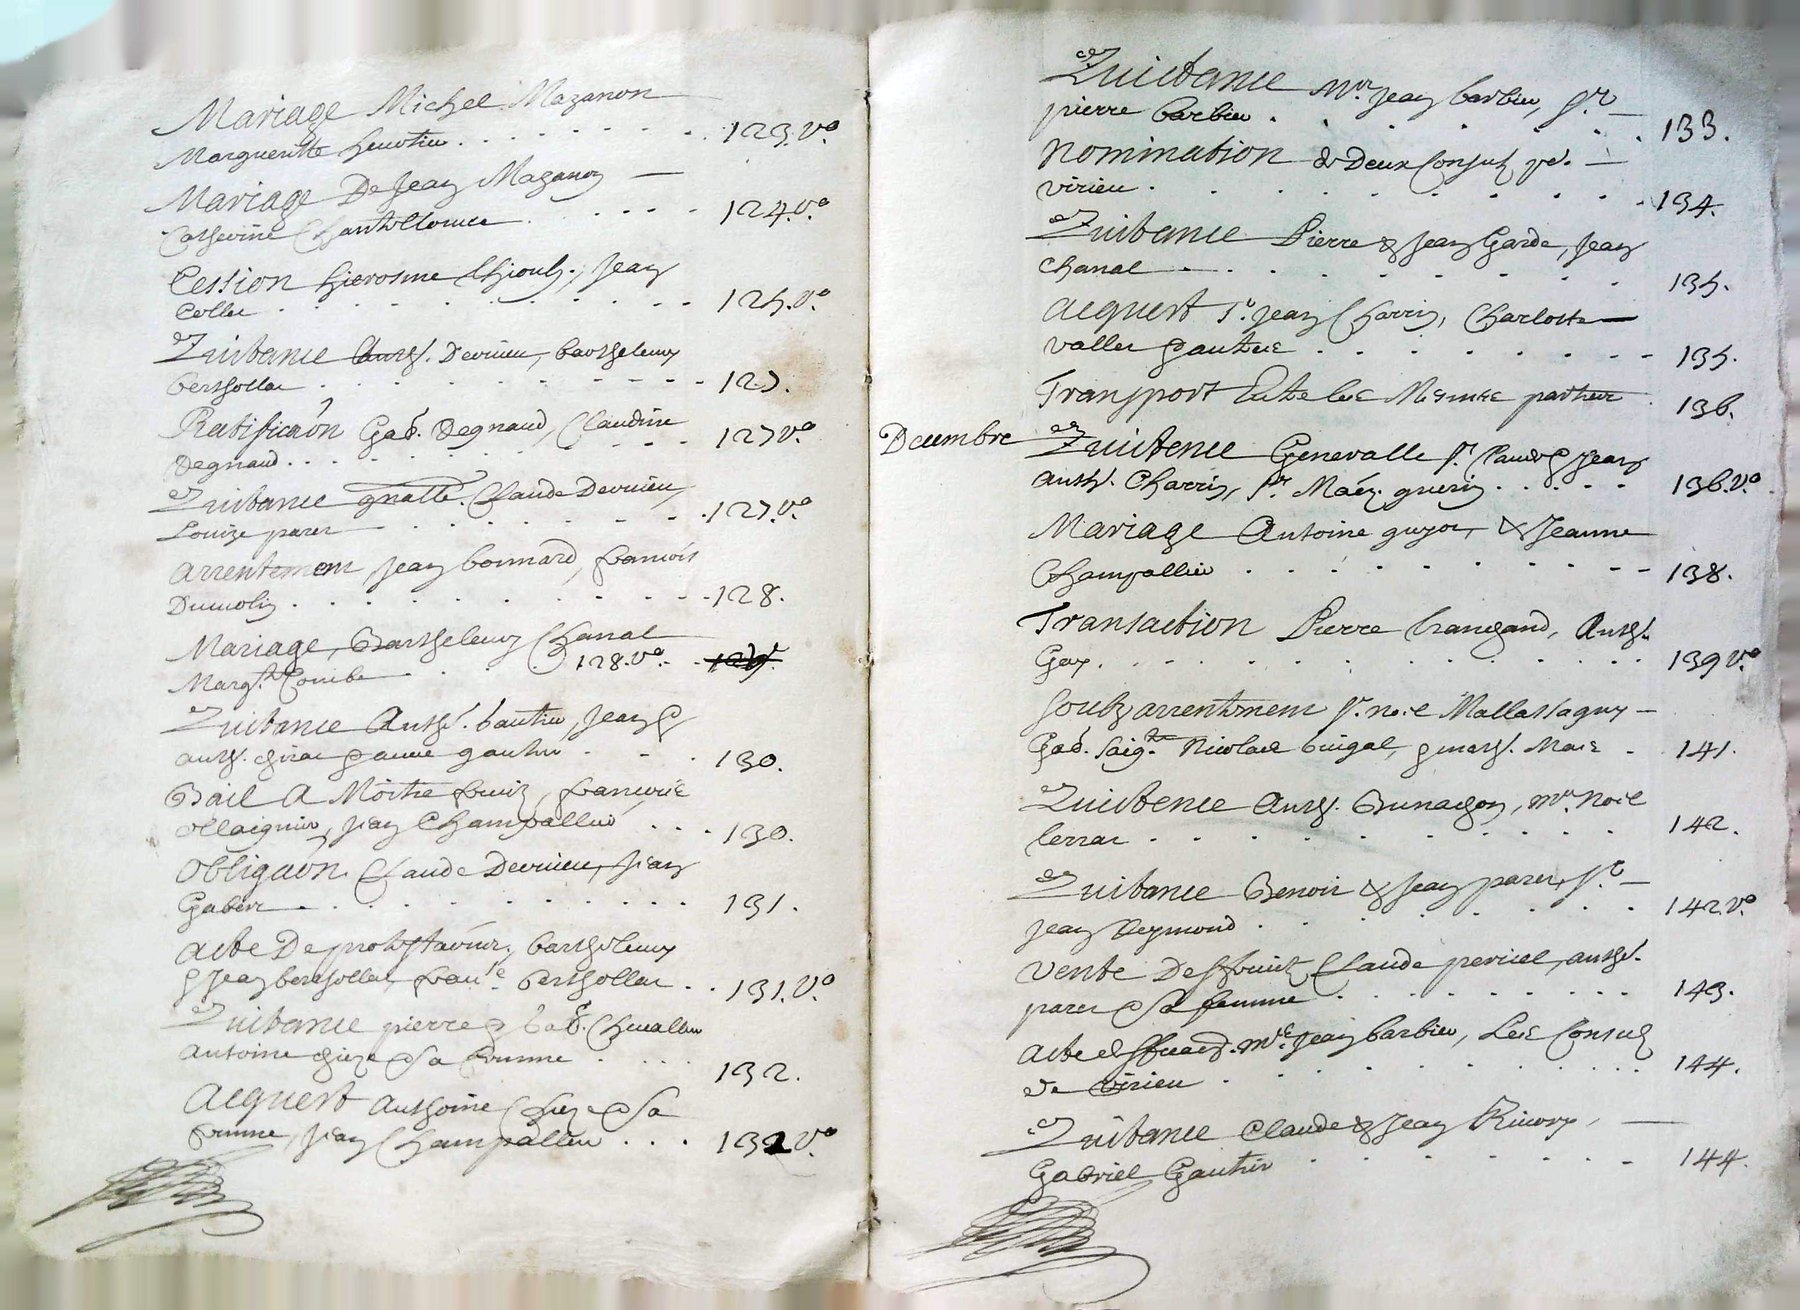 Mariage Michel Mazanon
Margueritte . . . . . . . 123.vo
Mariage De Jean Mazanon
Catherine . . . . . 124.vo
Cession hierosme Jean
Coller . . . . . . . . . 125.vo
Quitance Anth. Devrieu, barthelemy
berthollat . . . . . . . . . 127.
Ratificaon Gab. Degnaud, Claudine
Degnaud . . . . . . . 127 vo.
Quitance Claude Devrieu,
Louize parer . . . . . . . 127.vo
arrentement Jean bonnard, francois
Dumolin . . . . . . . . . 128.
Mariage, Barthelemy Chanal
Margte. Combe . . . . 128.vo
Quitance Anth. Gautier, Jean &
anth. gautier . . . 130.
Bail A Moitie fruitz, francoise
Jean Champallier . . . 130.
Obligaon. Claude Devrieu, Jean
Gabert . . . . . . . . . 131.
acte De barthelemy
& Jean berthollat, berthollat . . 131.vo
Quitance pierre & Gab. Chevallier
antoine & Sa femme . . . . 132.
Acquest Anthoine & Sa
femme, Jean Champallier . . . 132 vo.
Quictance Mre. Jean barbier, Sr.
pierre barbier . . . . . . . 133.
Nomination de Deux Consulz pr.
virieu . . . . . . . . . 134.
Quitance Pierre & Jean Garde, Jean
chanal . . . . . . . . 135.
acquest Sr. Jean Charrin, Charlotte
vallet . . . . . . . . . 135.
Transport Entre les Mesmes parties . 136.
Decembre
Quictence Genevalle Sr. Jean
anth. Charrin, Sr. guerin . . . . . 136.vo
Mariage Antoine guyot, & Jeanne
Champallier . . . . . . . . . 138.
Transaction Pierre Anth.
Gay . . . . . . . . . . . . 139 vo
Soubz arrentement Sr. noel Mallassagny
Gab. Nicolas . 141.
Quictence Anth. Bunachon, Mre. Noel
lerrat . . . . . . . . . 142.
Quitance Benoit & Jean parer, Sr.
Jean Reymond . . . . . . . . 142.vo
vente Des fruitz Claude anth.
parer & Sa femme . . . . . . . . 143.
acte Mre. Jean barbier, Les Consulz
de virieu . . . . . . . . . 144.
Quitance Claude & Jean Rivory,
Gabriel Gautier . . . . . . . 144.